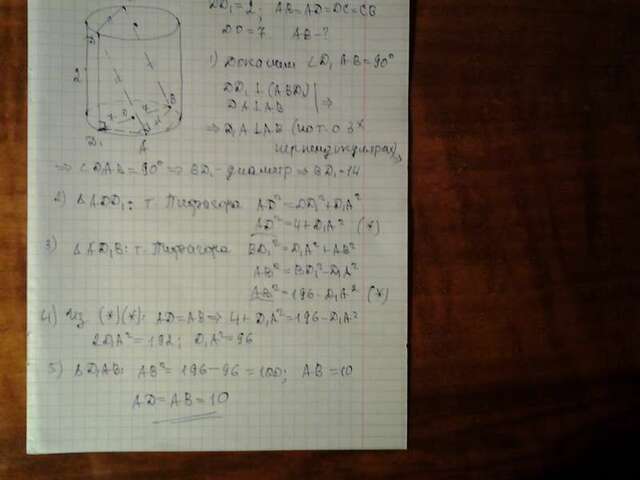 DD₁=2; AB=AD=DC=CB
DO=7 AB-?
1) Докажем ∠D₁AB=90°
DD₁⊥(ABD₁)
DA⊥AB ⇒
⇒ D₁A⊥AB (по т. о 3ˣ
перпендикулярах)
⇒ ∠D₁AB=90° ⇒ BD₁-диаметр ⇒ BD₁=14
2) ΔADD₁: т. Пифагора AD²=DD₁²+D₁A²
AD²=4+D₁A² (*)
3) ΔAD₁B: т. Пифагора BD₁²=D₁A²+AB²
AB²=BD₁²-D₁A²
AB²=196-D₁A² (*)
4) Из (*)(*): AD=AB ⇒ 4+D₁A²=196-D₁A²
2D₁A²=192; D₁A²=96
5) ΔD₁AB: AB²=196-96=100; AB=10
AD=AB=10
2
D
D₁
A
B